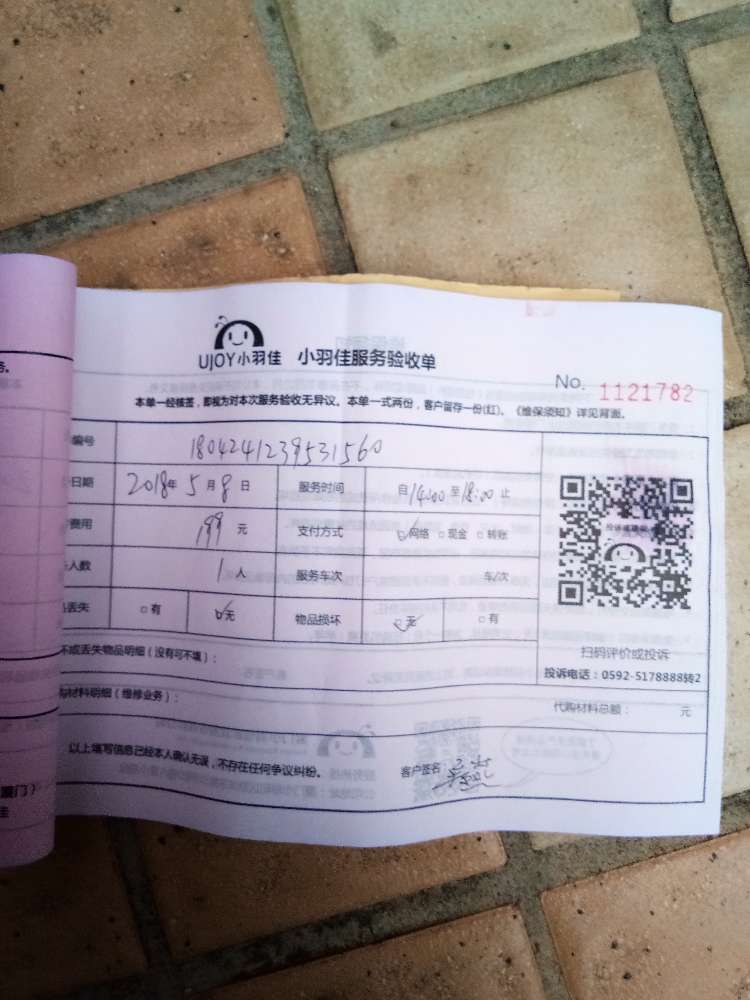 UJOY小羽佳 小羽佳服务验收单
No. 1121782
本单一经核签，即视为对本次服务验收无异议。本单一式两份，客户留存一份(红)。《维保须知》详见背面。
编号 1804241239531560
日期 2018年5月8日 服务时间 自14:00至18:00止
费用 199元 支付方式 ☑网络 □现金 □转账
人数 1人 服务车次 车/次
丢失 □有 ☑无 物品损坏 ☑无 □有
扫码评价或投诉
投诉电话：0592-5178888转2
坏或丢失物品明细（没有可不填）：
购材料明细（维修业务）：
代购材料总额： 元
以上填写信息已经本人确认无误，不存在任何争议纠纷。 客户签名：
务。
厦门）
佳